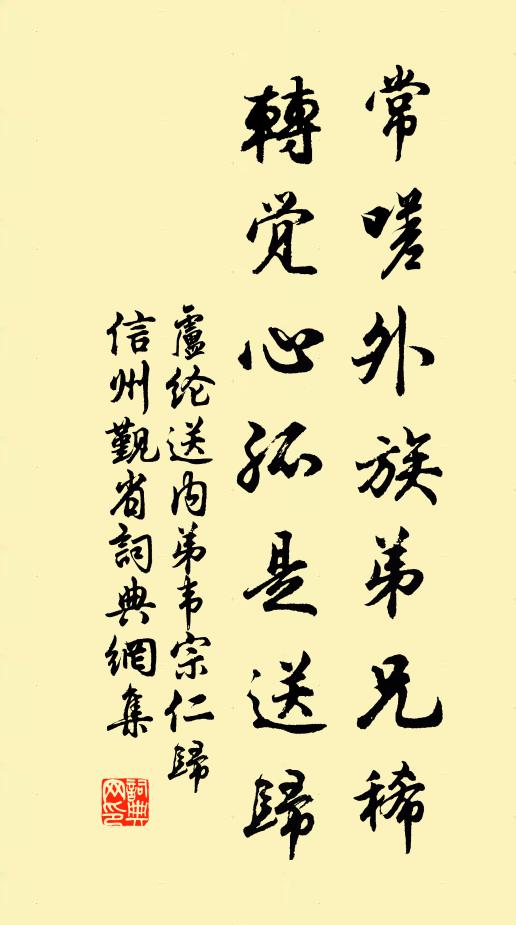 常嗟外族弟兄稀
轉觉心孤是送歸
盧纶送内弟韦宗仁歸
信州觐省詞典網集
詞典
网印